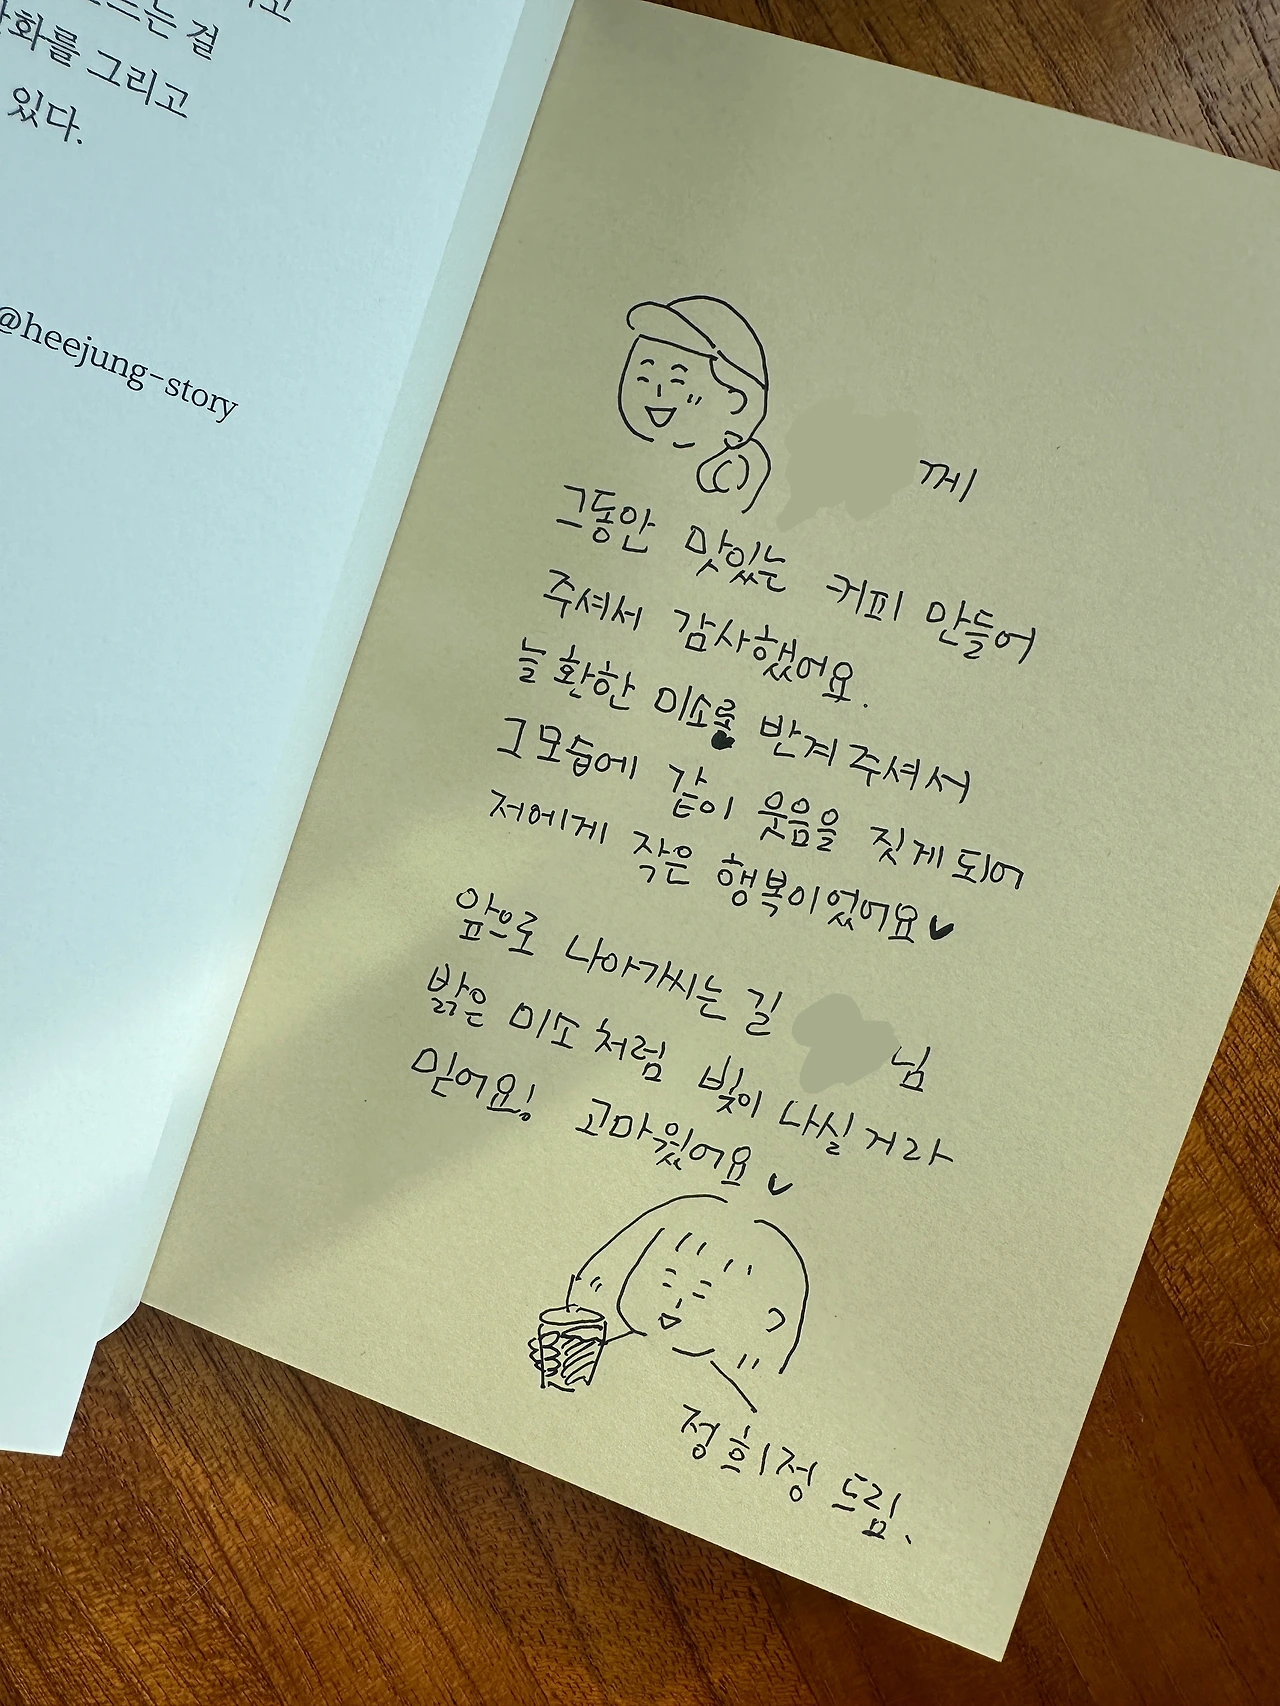 드는 걸
화를 그리고
있다.
@heejung-story
께
그동안 맛있는 커피 만들어
주셔서 감사했어요.
늘 환한 미소로 반겨주셔서
그 모습에 같이 웃음을 짓게 되어
저에게 작은 행복이었어요♥
앞으로 나아가시는 길 님
밝은 미소처럼 빛이 나실 거라
믿어요! 고마웠어요♥
정희정 드림.